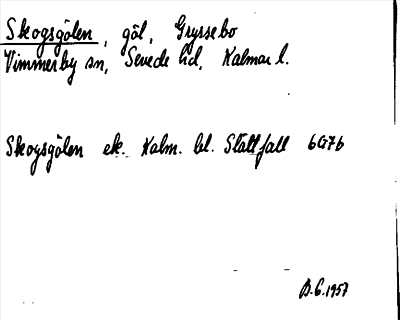 Skogsgölen, göl, Gryssebo
Vimmerby sn, Sevede hd, Kalmar l.
Skogsgölen ek. Kalm. bl. Slättfall 6G7b
B.G. 1957